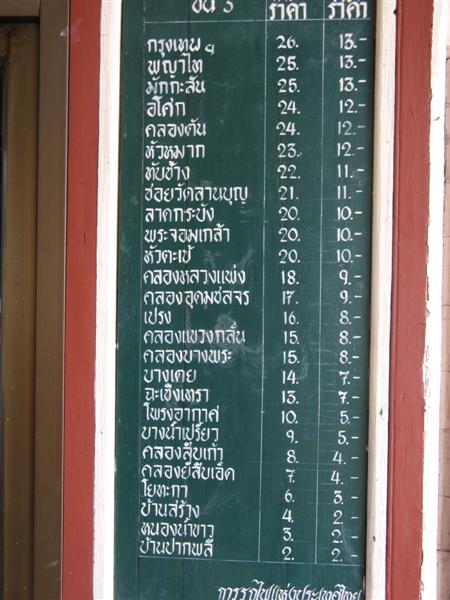 ชั้น 3 ราคา ราคา
กรุงเทพฯ 26. 13.-
พญาไท 25. 13.-
มักกะสัน 25. 13.-
อโศก 24. 12.-
คลองตัน 24. 12.-
หัวหมาก 23. 12.-
ทับช้าง 22. 11.-
ซ่อยวัดลานบุญ 21. 11.-
ลาดกระบัง 20. 10.-
พระจอมเกล้า 20. 10.-
หัวตะเข้ 20. 10.-
คลองหลวงแพ่ง 18. 9.-
คลองอุดมชลจร 17. 9.-
เปรง 16. 8.-
คลองแขวงกลั่น 15. 8.-
คลองบางพระ 15. 8.-
บางเตย 14. 7.-
ฉะเชิงเทรา 13. 7.-
โพรงอากาศ 10. 5.-
บางน้ำเปรี้ยว 9. 5.-
คลองสิบเก้า 8. 4.-
คลองยี่สิบเอ็ด 7. 4.-
โยทะกา 6. 3.-
บ้านสร้าง 4. 2.-
หนองน้ำขาว 3. 2.-
บ้านปากพลี 2. 2.-
การรถไฟแห่งประเทศไทย